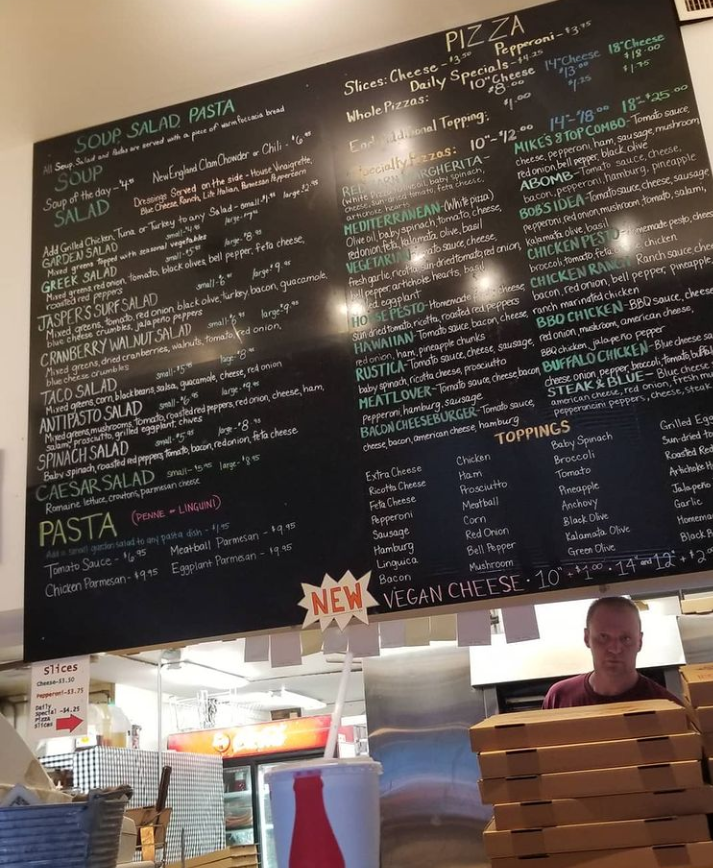 SOUP, SALAD, PASTA
All Soup, Salad and Pasta are served with a piece of warm foccacia bread
SOUP
Soup of the day - $4.95 New England Clam Chowder or Chili - $6.95
SALAD
Dressings Served on the side - House Vinaigrette,
Blue Cheese, Ranch, Lite Italian, Parmesan Peppercorn
Add Grilled Chicken, Tuna or Turkey to any Salad - small
GARDEN SALAD
Mixed greens topped with seasonal vegetables
GREEK SALAD
Mixed greens, red onion, tomato, black olives, bell pepper, feta cheese,
roasted red peppers
JASPER'S SURF SALAD
Mixed greens, tomato, red onion, black olive, turkey, bacon, guacamole,
blue cheese crumbles, jalapeño peppers
CRANBERRY WALNUT SALAD
Mixed greens, dried cranberries, walnuts, tomato, red onion,
blue cheese crumbles
TACO SALAD
Mixed greens, corn, black beans, salsa, guacamole, cheese, red onion
ANTIPASTO SALAD
Mixed greens, mushrooms, tomato, roasted red peppers, red onion, cheese, ham,
salami, prosciutto, grilled eggplant, chives
SPINACH SALAD
Baby spinach, roasted red peppers, tomato, bacon, red onion, feta cheese
CAESAR SALAD small - $5.95 large - $8.95
Romaine lettuce, croutons, parmesan cheese
PASTA (PENNE or LINGUINI)
Add a small garden salad to any pasta dish - $1.95
Tomato Sauce - $6.95 Meatball Parmesan - $9.95
Chicken Parmesan - $9.95 Eggplant Parmesan - $9.95
PIZZA
Slices: Cheese - $3.50 Pepperoni - $3.75
Daily Specials - $4.25
Whole Pizzas: 10" Cheese 14" Cheese 18" Cheese
$8.00 $13.00 $18.00
Each Additional Topping: $1.00 $1.25 $1.75
Specialty Pizzas: 10" - $12.00 14" - $18.00 18" - $25.00
MARGHERITA -
MEDITERRANEAN - (White pizza)
Olive oil, baby spinach, tomato, cheese,
red onion, feta, kalamata olive, basil
VEGETARIAN - Tomato sauce, cheese,
fresh garlic, ricotta, sun dried tomato, red onion,
bell pepper, artichoke hearts, basil
eggplant
HOUSE PESTO - Homemade
sun dried tomato, ricotta, roasted red peppers
HAWAIIAN - Tomato sauce, bacon, cheese,
red onion, ham, pineapple chunks
RUSTICA - Tomato sauce, cheese, sausage,
baby spinach, ricotta cheese, prosciutto
MEATLOVER - Tomato sauce, cheese, bacon
Pepperoni, hamburg, sausage
BACON CHEESEBURGER - Tomato sauce,
cheese, bacon, american cheese, hamburg
MIKE'S 8 TOP COMBO - Tomato sauce,
cheese, pepperoni, ham, sausage, mushroom
red onion, bell pepper, black olive
ABOMB - Tomato sauce, cheese,
bacon, pepperoni, hamburg, pineapple
BOB'S IDEA - Tomato sauce, cheese, sausage
pepperoni, red onion, mushroom, tomato, salami,
kalamata olive, basil
CHICKEN PESTO - Homemade pesto, chees
broccoli, tomato, feta chicken
CHICKEN RANCH Ranch sauce, che
bacon, red onion, bell pepper, pineapple,
ranch marinated chicken
BBQ CHICKEN - BBQ sauce, cheese
red onion, mushroom, american cheese,
BBQ chicken, jalapeño pepper
BUFFALO CHICKEN - Blue cheese sa
cheese, onion, pepper, broccoli, tomato, buffal
STEAK & BLUE - Blue cheese
american cheese, red onion, fresh m
pepperoncini peppers, cheese, steak
TOPPINGS
Extra Cheese
Ricotta Cheese
Feta Cheese
Pepperoni
Sausage
Hamburg
Linguica
Bacon
Chicken
Ham
Prosciutto
Meatball
Corn
Red Onion
Bell Pepper
Mushroom
Baby Spinach
Broccoli
Tomato
Pineapple
Anchovy
Black Olive
Kalamata Olive
Green Olive
Grilled Egg
Sun-dried to
Roasted Red
Artichoke H
Jalapeño
Garlic
Homema
Black B
NEW VEGAN CHEESE • 10" + $1.00 • 14" and 12" + $2.0
Slices
Cheese-$3.50
Pepperoni-$3.75
Daily
Special -$4.25
Pizza
Slices